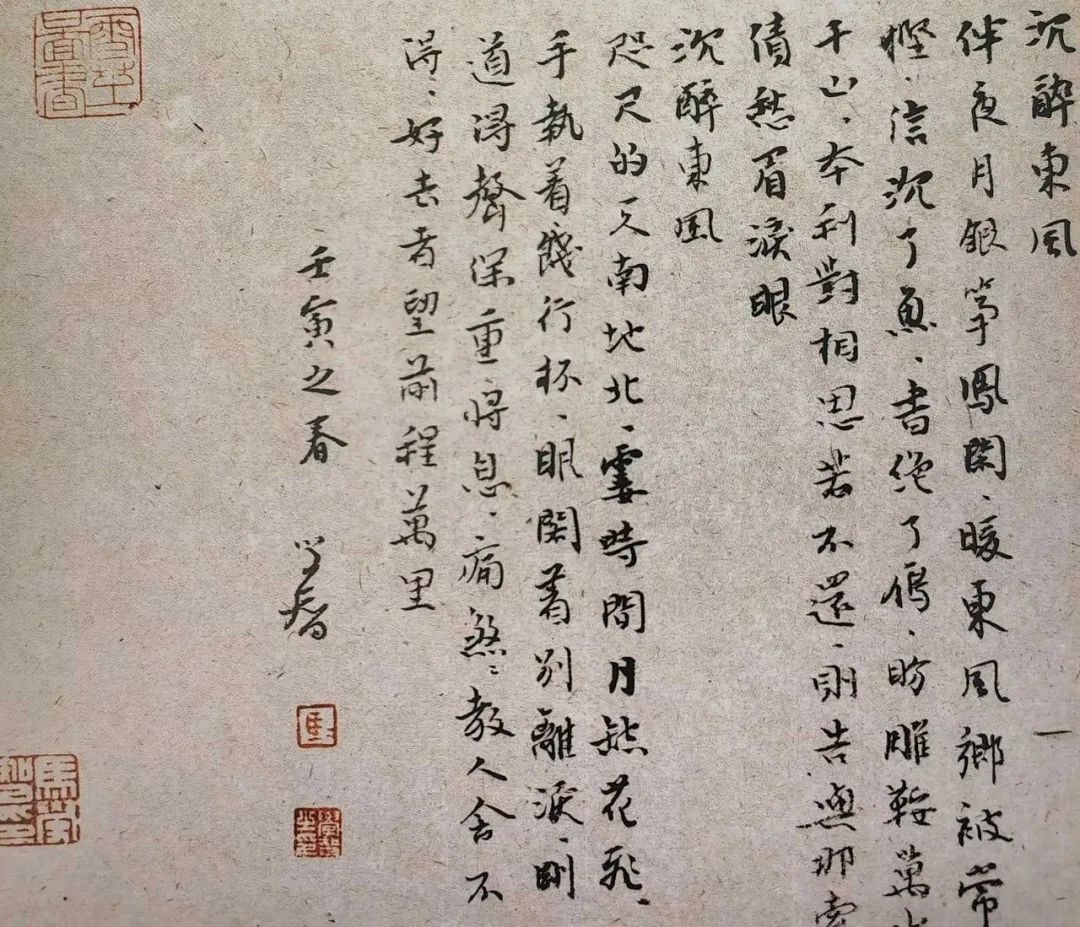 沉醉東風
伴夜月銀箏鳳閑、暖東風繡被常
慳、信沉了魚、書絕了鴈、盼雕鞍萬水
千山、本利對相思若不還、則告與那索
債愁眉淚眼
沉醉東風
咫尺的天南地北、霎時間月缺花飛、
手執着餞行杯、眼閣着別離淚、剛
道得聲保重將息、痛煞〻教人舍不
得、好去者望前程萬里
壬寅之春
學智
馬